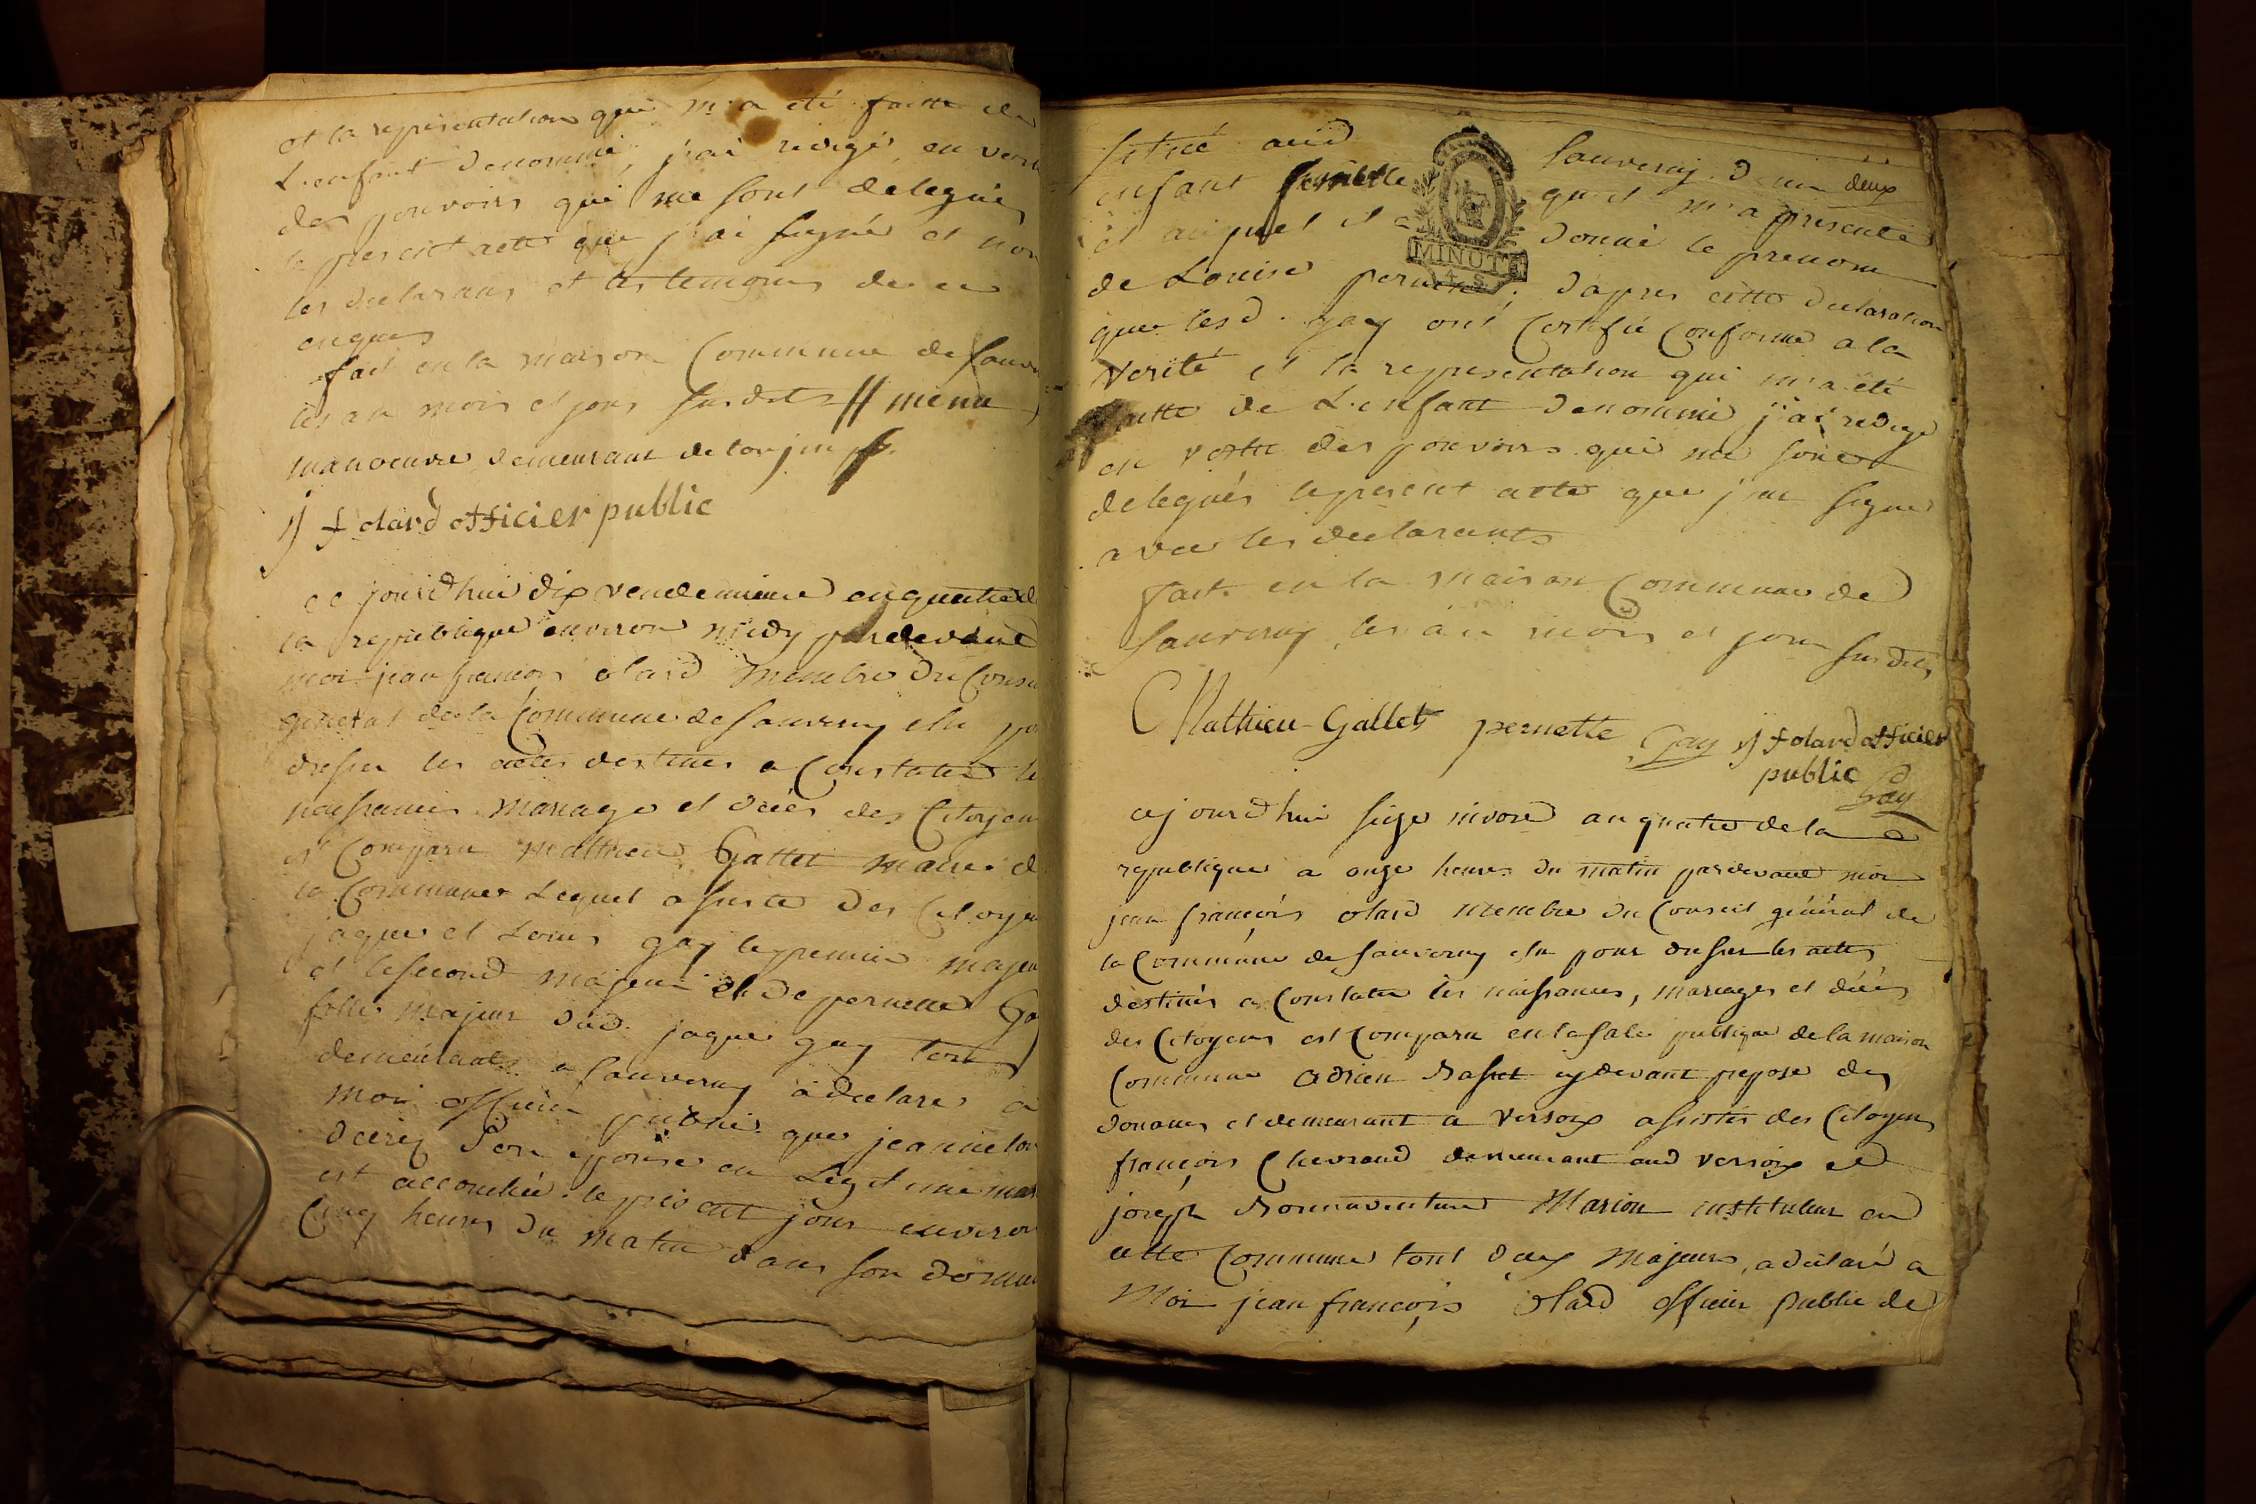 et la representation qui m'a été faitte de
L'enfant denommé, j'ai redigé, en vertu
des pouvoirs qui me sont delegués
le present acte que j'ai signé et non
les declarans et les temoins de ce
enquis
fait en la maison Commune de Sauv
les an mois et jour susdits // menu
manoeuvre demeurant de
jj f olard officier public
ce jourd'hui dix vendemiaire an quatre de
la republique environ midy pardevant
moi jean francois olard membre du Conseil
general de la Commune de Sauverny elu po
dresser les actes destinés a Constater le
naissances mariage et décès des Citoyens
est Comparu Mathieu Gallet maire d
la Commune Lequel assisté des Citoye
jaques et Louis gay le premier majeu
et le second majeur et de pernette Ga
fille majeur dud. jaque gay tous
demeurants a Sauverny a declaré a
moi officier public que jeanne lou
son epouse en Legitime mar
est accouchée le present jour environ
Cinq heures du matin dans son domi
situé aud Sauverny d'un deux
enfant femelle qu'il m'a presenté
et auquel il a donné le prenom
MINUTE
de Louise pernette, d'apres cette declaration
que lesd. gay ont Certifié Conforme a la
verité et la representation qui m'a été
faitte de L'enfant denommé j'ai redigé
en vertu des pouvoirs qui me sont
delegués le present acte que j'ai signé
avec les declarants
fait en la maison Commune de
Sauverny les an mois et jour susdits
Mathieu Gallet pernette Gay jj f olard officier
public Gay
cejourd'hui seize nivose an quatre de la
republique a onze heures du matin pardevant moi
jean françois olard membre du Conseil général de
la Commune de Sauverny elu pour dresser les actes
destinés a Constater les naissances, mariages et décès
des Citoyens est Comparu en la sale publique de la maison
Commune Adrien Basset cydevant preposé des
douanes et demeurant a Versoix assistés des Citoyens
françois Chevrand demeurant aud Versoix et
joseph Bonnaventure Marion instituteur en
cette Commune tous deux Majeurs, a déclaré a
Moi jean françois olard officier public de